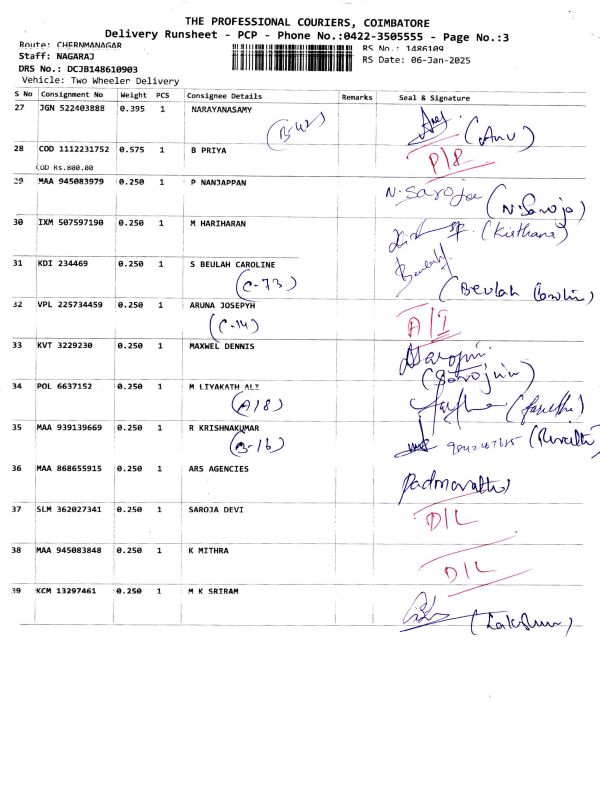 THE PROFESSIONAL COURIERS, COIMBATORE
Delivery Runsheet - PCP - Phone No.:0422-3505555 - Page No.:3
Route: CHERNMANAGAR RS No.: 1486109
Staff: NAGARAJ RS Date: 06-Jan-2025
DRS No.: DCJB148610903
Vehicle: Two Wheeler Delivery
S No Consignment No Weight PCS Consignee Details Remarks Seal & Signature
27 JGN 522403888 0.395 1 NARAYANASAMY
(B-42) (Anu)
28 COD 1112231752 0.575 1 B PRIYA P/8
COD Rs.800.00
29 MAA 945083979 0.250 1 P NANJAPPAN N.Saroja
(N.Saroja)
30 IXM 507597190 0.250 1 M HARIHARAN (Kirthana)
31 KDI 234469 0.250 1 S BEULAH CAROLINE Beulah
(C-73) (Beulah Caroline)
32 VPL 225734459 0.250 1 ARUNA JOSEPYH
(C-14) A/I
33 KVT 3229230 0.250 1 MAXWEL DENNIS Sarojini
(Sarojini)
34 POL 6637152 0.250 1 M LIYAKATH ALI
(A18)
35 MAA 939139669 0.250 1 R KRISHNAKUMAR
(B-16)
36 MAA 868655915 0.250 1 ARS AGENCIES Padmavathi
37 SLM 362027341 0.250 1 SAROJA DEVI D/L
38 MAA 945083848 0.250 1 K MITHRA D/L
39 KCM 13297461 0.250 1 M K SRIRAM